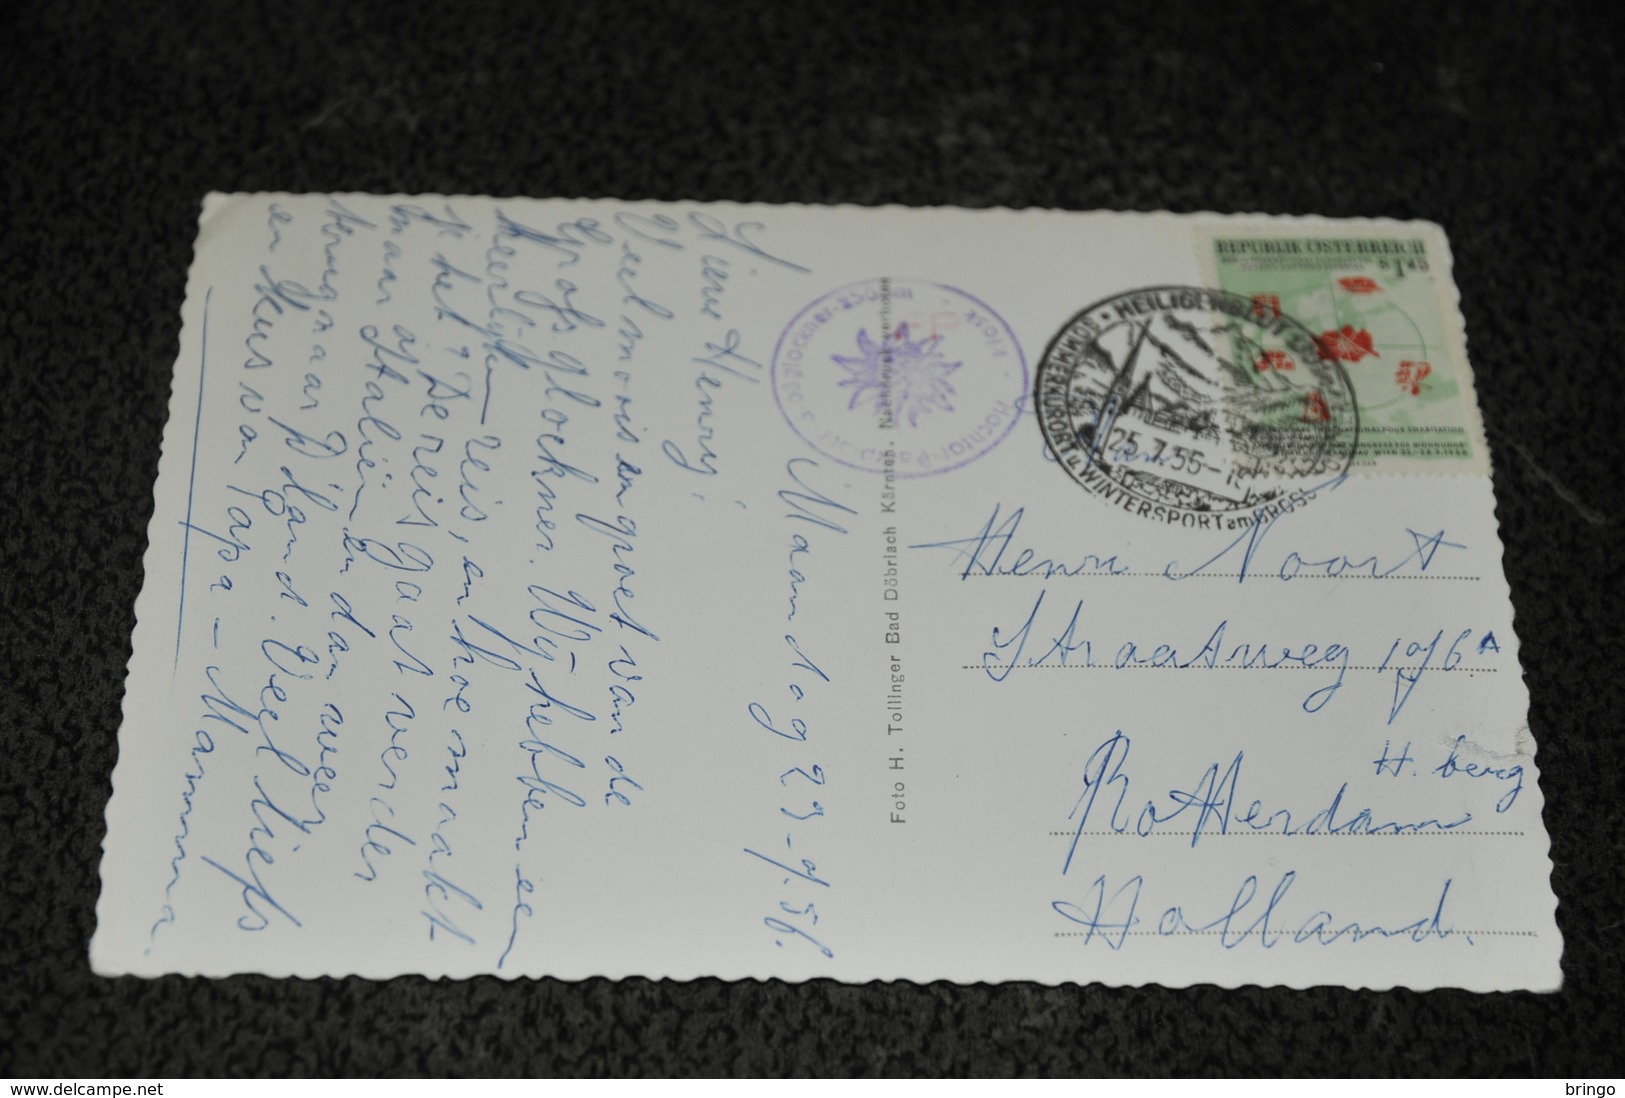 Maandag 23-7.56.
Lieve Henry,
Veel moois en groet van de
Grossglockner. Wij hebben een
heerlijke reis, en hoe maakt
jij het? De reis gaat verder
maar op Italiën en dan weer
terug naar Holland. Veel liefs
en kus van Papa - Mamma.
Foto H. Tollinger Bad Döbriach Kärnten. Nachdruck verboten
REPUBLIK ÖSTERREICH
HEILIGENBLUT
SOMMERKURORT u. WINTERSPORT am
25.7.56-
Aan
Henri Noort
Straatweg 176A
H. berg
Rotterdam
Holland.
bringo
www.delcampe.net